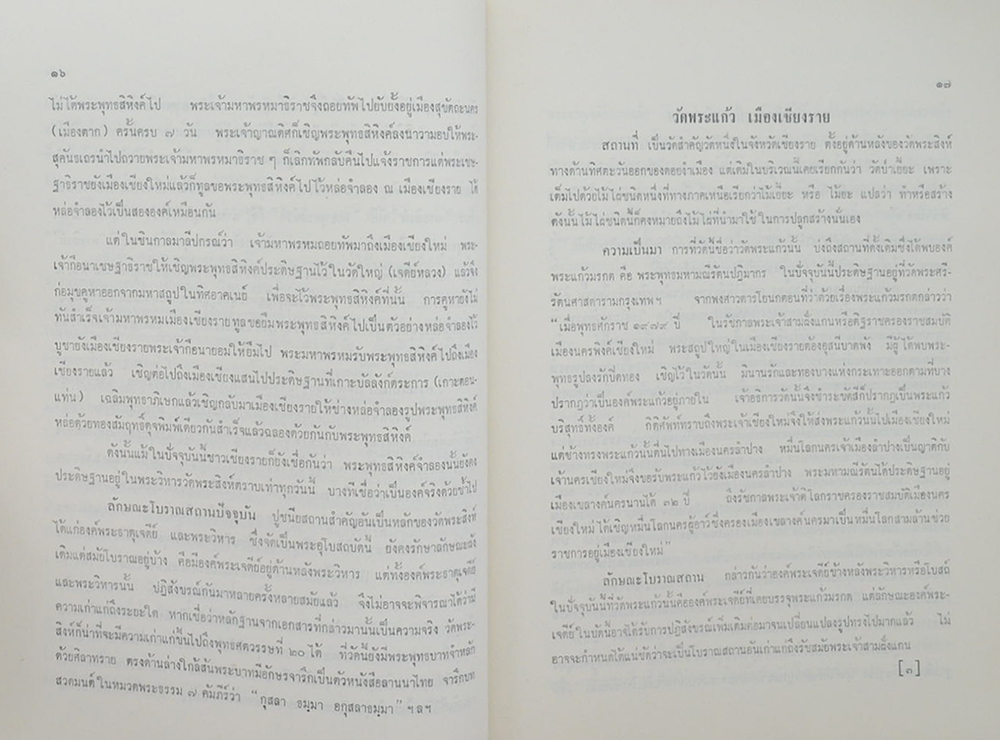 ๑๖
ไม่ได้พระพุทธสิหิงค์ไป พระเจ้ามหาพรหมาธิราชจึงถอยทัพไปยับยั้งอยู่เมืองสุขัตถะนคร
(เมืองตาก) ครั้นครบ ๗ วัน พระเจ้าญาณดิศก็เชิญพระพุทธสิหิงค์ลงนาวามอบให้พระ-
สุคันธเถรนำไปถวายพระเจ้ามหาพรหมาธิราช ๆ ก็เลิกทัพกลับคืนไปแจ้งราชการแด่พระเชษ-
ฐาธิราชยังเมืองเชียงใหม่แล้วก็ทูลขอพระพุทธสิหิงค์ไปไว้หล่อจำลอง ณ เมืองเชียงราย ได้
หล่อจำลองไว้เป็นสององค์เหมือนกัน
แต่ในชินกาลมาลีปกรณ์ว่า เจ้ามหาพรหมถอยทัพมาถึงเมืองเชียงใหม่ พระ-
เจ้ากือนาเชษฐาธิราชให้เชิญพระพุทธสิหิงค์ประดิษฐานไว้ในวัดใหญ่ (เจดีย์หลวง) แล้วจึง
ก่อมุขคูหาออกจากมหาสถูปในทิศอาคเนย์ เพื่อจะไว้พระพุทธสิหิงค์ที่นั้น การคูหายังไม่
ทันสำเร็จเจ้ามหาพรหมเมืองเชียงรายทูลขอยืมพระพุทธสิหิงค์ไปเป็นตัวอย่างหล่อจำลองไว้
บูชายังเมืองเชียงรายพระเจ้ากือนายอมให้ยืมไป พระมหาพรหมรับพระพุทธสิหิงค์ไปถึงเมือง
เชียงรายแล้ว เชิญต่อไปถึงเมืองเชียงแสนไปประดิษฐานที่เกาะบัลลังก์ตระการ (เกาะดอน-
แท่น) เฉลิมพุทธาภิเษกแล้วเชิญกลับมาเมืองเชียงรายให้ช่างหล่อจำลองรูปพระพุทธสิหิงค์
หล่อด้วยทองสัมฤทธิ์ดุจพิมพ์เดียวกันสำเร็จแล้วฉลองด้วยกันกับพระพุทธสิหิงค์
ดังนั้นแม้ในปัจจุบันนี้ชาวเชียงรายก็ยังเชื่อกันว่า พระพุทธสิหิงค์จำลองนั้นยังคง
ประดิษฐานอยู่ในพระวิหารวัดพระสิงห์ตราบเท่าทุกวันนี้ บางทีเชื่อว่าเป็นองค์จริงด้วยซ้ำไป
ลักษณะโบราณสถานปัจจุบัน ปูชนียสถานสำคัญอันเป็นหลักของวัดพระสิงห์
ได้แก่องค์พระธาตุเจดีย์ และพระวิหาร ซึ่งจัดเป็นพระอุโบสถบัดนี้ ยังคงรักษาลักษณะดั้ง
เดิมแต่สมัยโบราณอยู่บ้าง คือมีองค์พระเจดีย์อยู่ด้านหลังพระวิหาร แต่ทั้งองค์พระธาตุเจดีย์
และพระวิหารนั้น ปฏิสังขรณ์กันมาหลายครั้งหลายสมัยแล้ว จึงไม่อาจจะพิจารณาได้ว่ามี
ความเก่าแก่ถึงระยะใด หากเชื่อว่าหลักฐานจากเอกสารที่กล่าวมานั้นเป็นความจริง วัดพระ-
สิงห์ก็น่าที่จะมีความเก่าแก่ขึ้นไปถึงพุทธศตวรรษที่ ๒๐ ได้ ที่วัดนี้ยังมีพระพุทธบาทจำหลัก
ด้วยศิลาทราย ตรงด้านล่างใกล้สันพระบาทมีอักษรจารึกเป็นตัวหนังสือลานนาไทย จารึกบท
สวดมนต์ในหมวดพระธรรม ๗ คัมภีร์ว่า “กุสลา ธมฺมา อกุสลาธมฺมา” ฯลฯ
๑๗
วัดพระแก้ว เมืองเชียงราย
สถานที่ เป็นวัดสำคัญวัดหนึ่งในจังหวัดเชียงราย ตั้งอยู่ด้านหลังของวัดพระสิงห์
ทางด้านทิศตะวันออกของดอยงำเมือง แต่เดิมในบริเวณนี้เคยเรียกกันว่า วัดป่าเยี้ยะ เพราะ
เต็มไปด้วยไม้ไผ่ชนิดหนึ่งที่ทางภาคเหนือเรียกว่าไม้เยี้ยะ หรือ ไม้ยะ แปลว่า ทำหรือสร้าง
ดังนั้นไม้ไผ่ชนิดนี้ก็คงหมายถึงไม้ไผ่ที่นำมาใช้ในการปลูกสร้างนั่นเอง
ความเป็นมา การที่วัดนี้ชื่อว่าวัดพระแก้วนั้น บ่งถึงสถานที่ตั้งเดิมซึ่งได้พบองค์
พระแก้วมรกต คือ พระพุทธมหามณีรัตนปฏิมากร ในปัจจุบันนี้ประดิษฐานอยู่ที่วัดพระศรี-
รัตนศาสดารามกรุงเทพฯ จากพงศาวดารโยนกตอนที่ว่าด้วยเรื่องพระแก้วมรกตกล่าวว่า
“เมื่อพุทธศักราช ๑๙๗๙ ปี ในรัชกาลพระเจ้าสามฝั่งแกนหรือดิฐราชครองราชสมบัติ
เมืองนครพิงค์เชียงใหม่ พระสถูปใหญ่ในเมืองเชียงรายต้องอสุนีบาตพัง มีผู้ได้พบพระ-
พุทธรูปลงรักปิดทอง เชิญไว้ในวัดนั้น มินานรักและทองบางแห่งกระเทาะออกตามที่บาง
ปรากฏว่าเป็นองค์พระแก้วอยู่ภายใน เจ้าอธิการวัดนั้นจึงชำระขัดสีก็ปรากฏเป็นพระแก้ว
บริสุทธิ์ทั้งองค์ กิตติศัพท์ทราบถึงพระเจ้าเชียงใหม่จึงให้ส่งพระแก้วนั้นไปเมืองเชียงใหม่
แต่ช้างทรงพระแก้วนั้นตื่นไปทางเมืองนครลำปาง หมื่นโลกนครเจ้าเมืองลำปางเป็นญาติกับ
เจ้านครเชียงใหม่จึงขอรับพระแก้วไว้ยังเมืองนครลำปาง พระมหามณีรัตนได้ประดิษฐานอยู่
เมืองเขลางค์นครนานได้ ๓๒ ปี ถึงรัชกาลพระเจ้าติโลกราชครองราชสมบัติเมืองนคร
เชียงใหม่ ได้เชิญหมื่นโลกนครผู้อาว์ซึ่งครองเมืองเขลางค์นครมาเป็นหมื่นโลกสามล้านช่วย
ราชการอยู่เมืองเชียงใหม่”
ลักษณะโบราณสถาน กล่าวกันว่าองค์พระเจดีย์ข้างหลังพระวิหารหรือโบสถ์
ในปัจจุบันนี้ที่วัดพระแก้วนั้นคือองค์พระเจดีย์ที่เคยบรรจุพระแก้วมรกต แต่ลักษณะองค์พระ-
เจดีย์ในบัดนี้อาจได้รับการปฏิสังขรณ์เพิ่มเติมต่อมาจนเปลี่ยนแปลงรูปทรงไปมากแล้ว ไม่
อาจจะกำหนดได้แน่ชัดว่าจะเป็นโบราณสถานอันเก่าแก่ถึงรัชสมัยพระเจ้าสามฝั่งแกน
[๓]